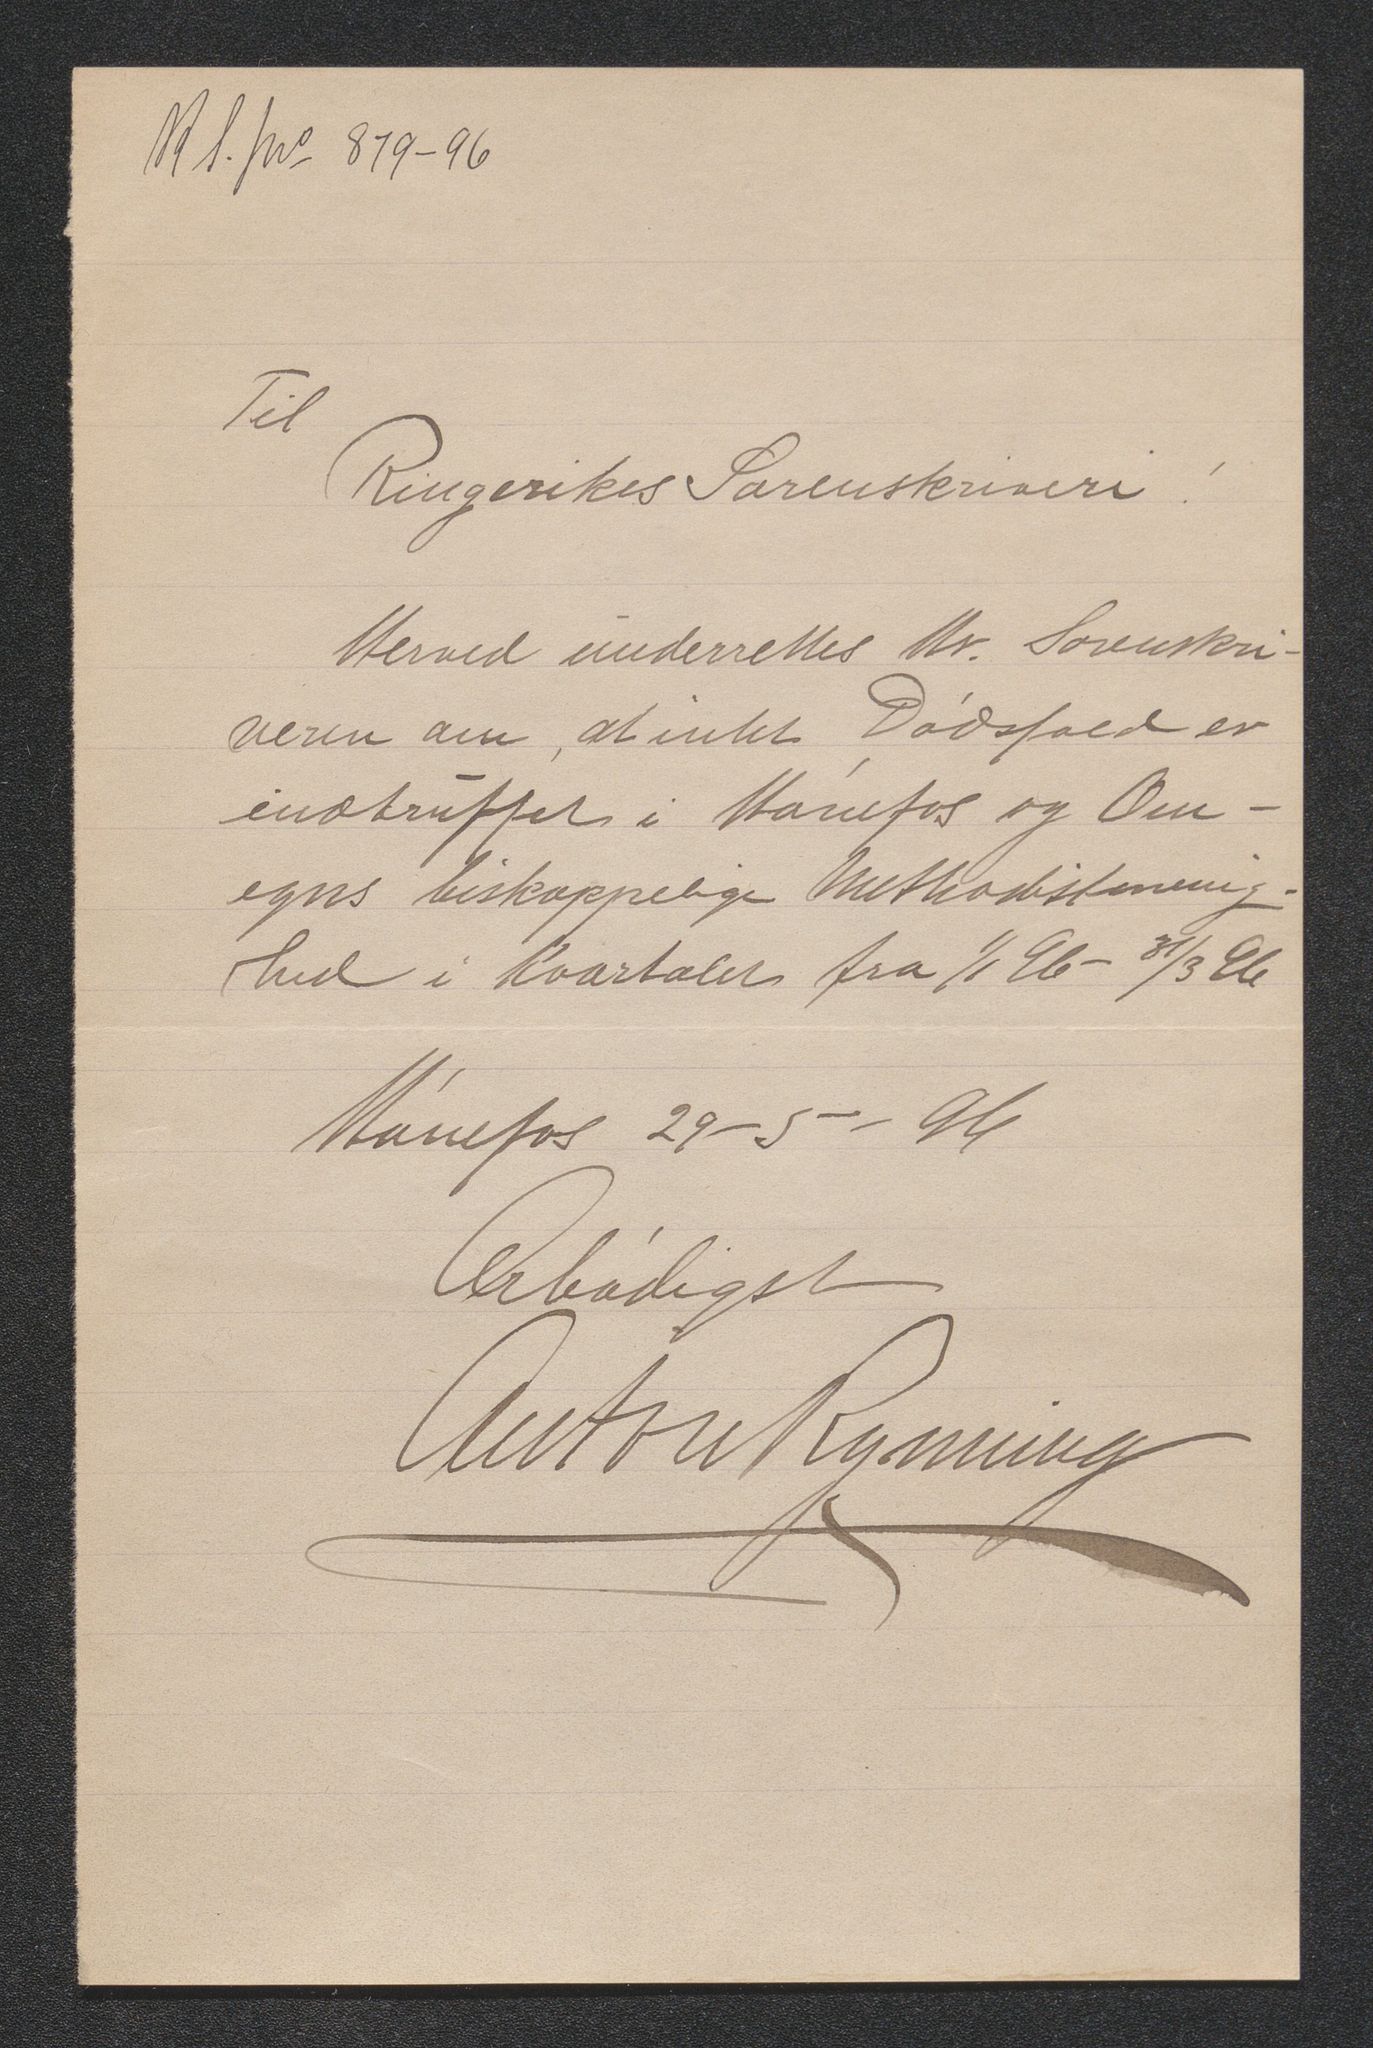 R S. jno 879-96
Til
Ringerikes Sorenskriveri!
Herved underrettes Hr. Sorenskri-
veren om, at intet Dódsfald er
indtruffet i Hónefos og Om-
egns biskoppelige Methodistmenig-
hed i Kvartalet fra 1/1 96 - 31/3 96
Hónefos 29-5-96
Ærbódigst
Anton Rynning